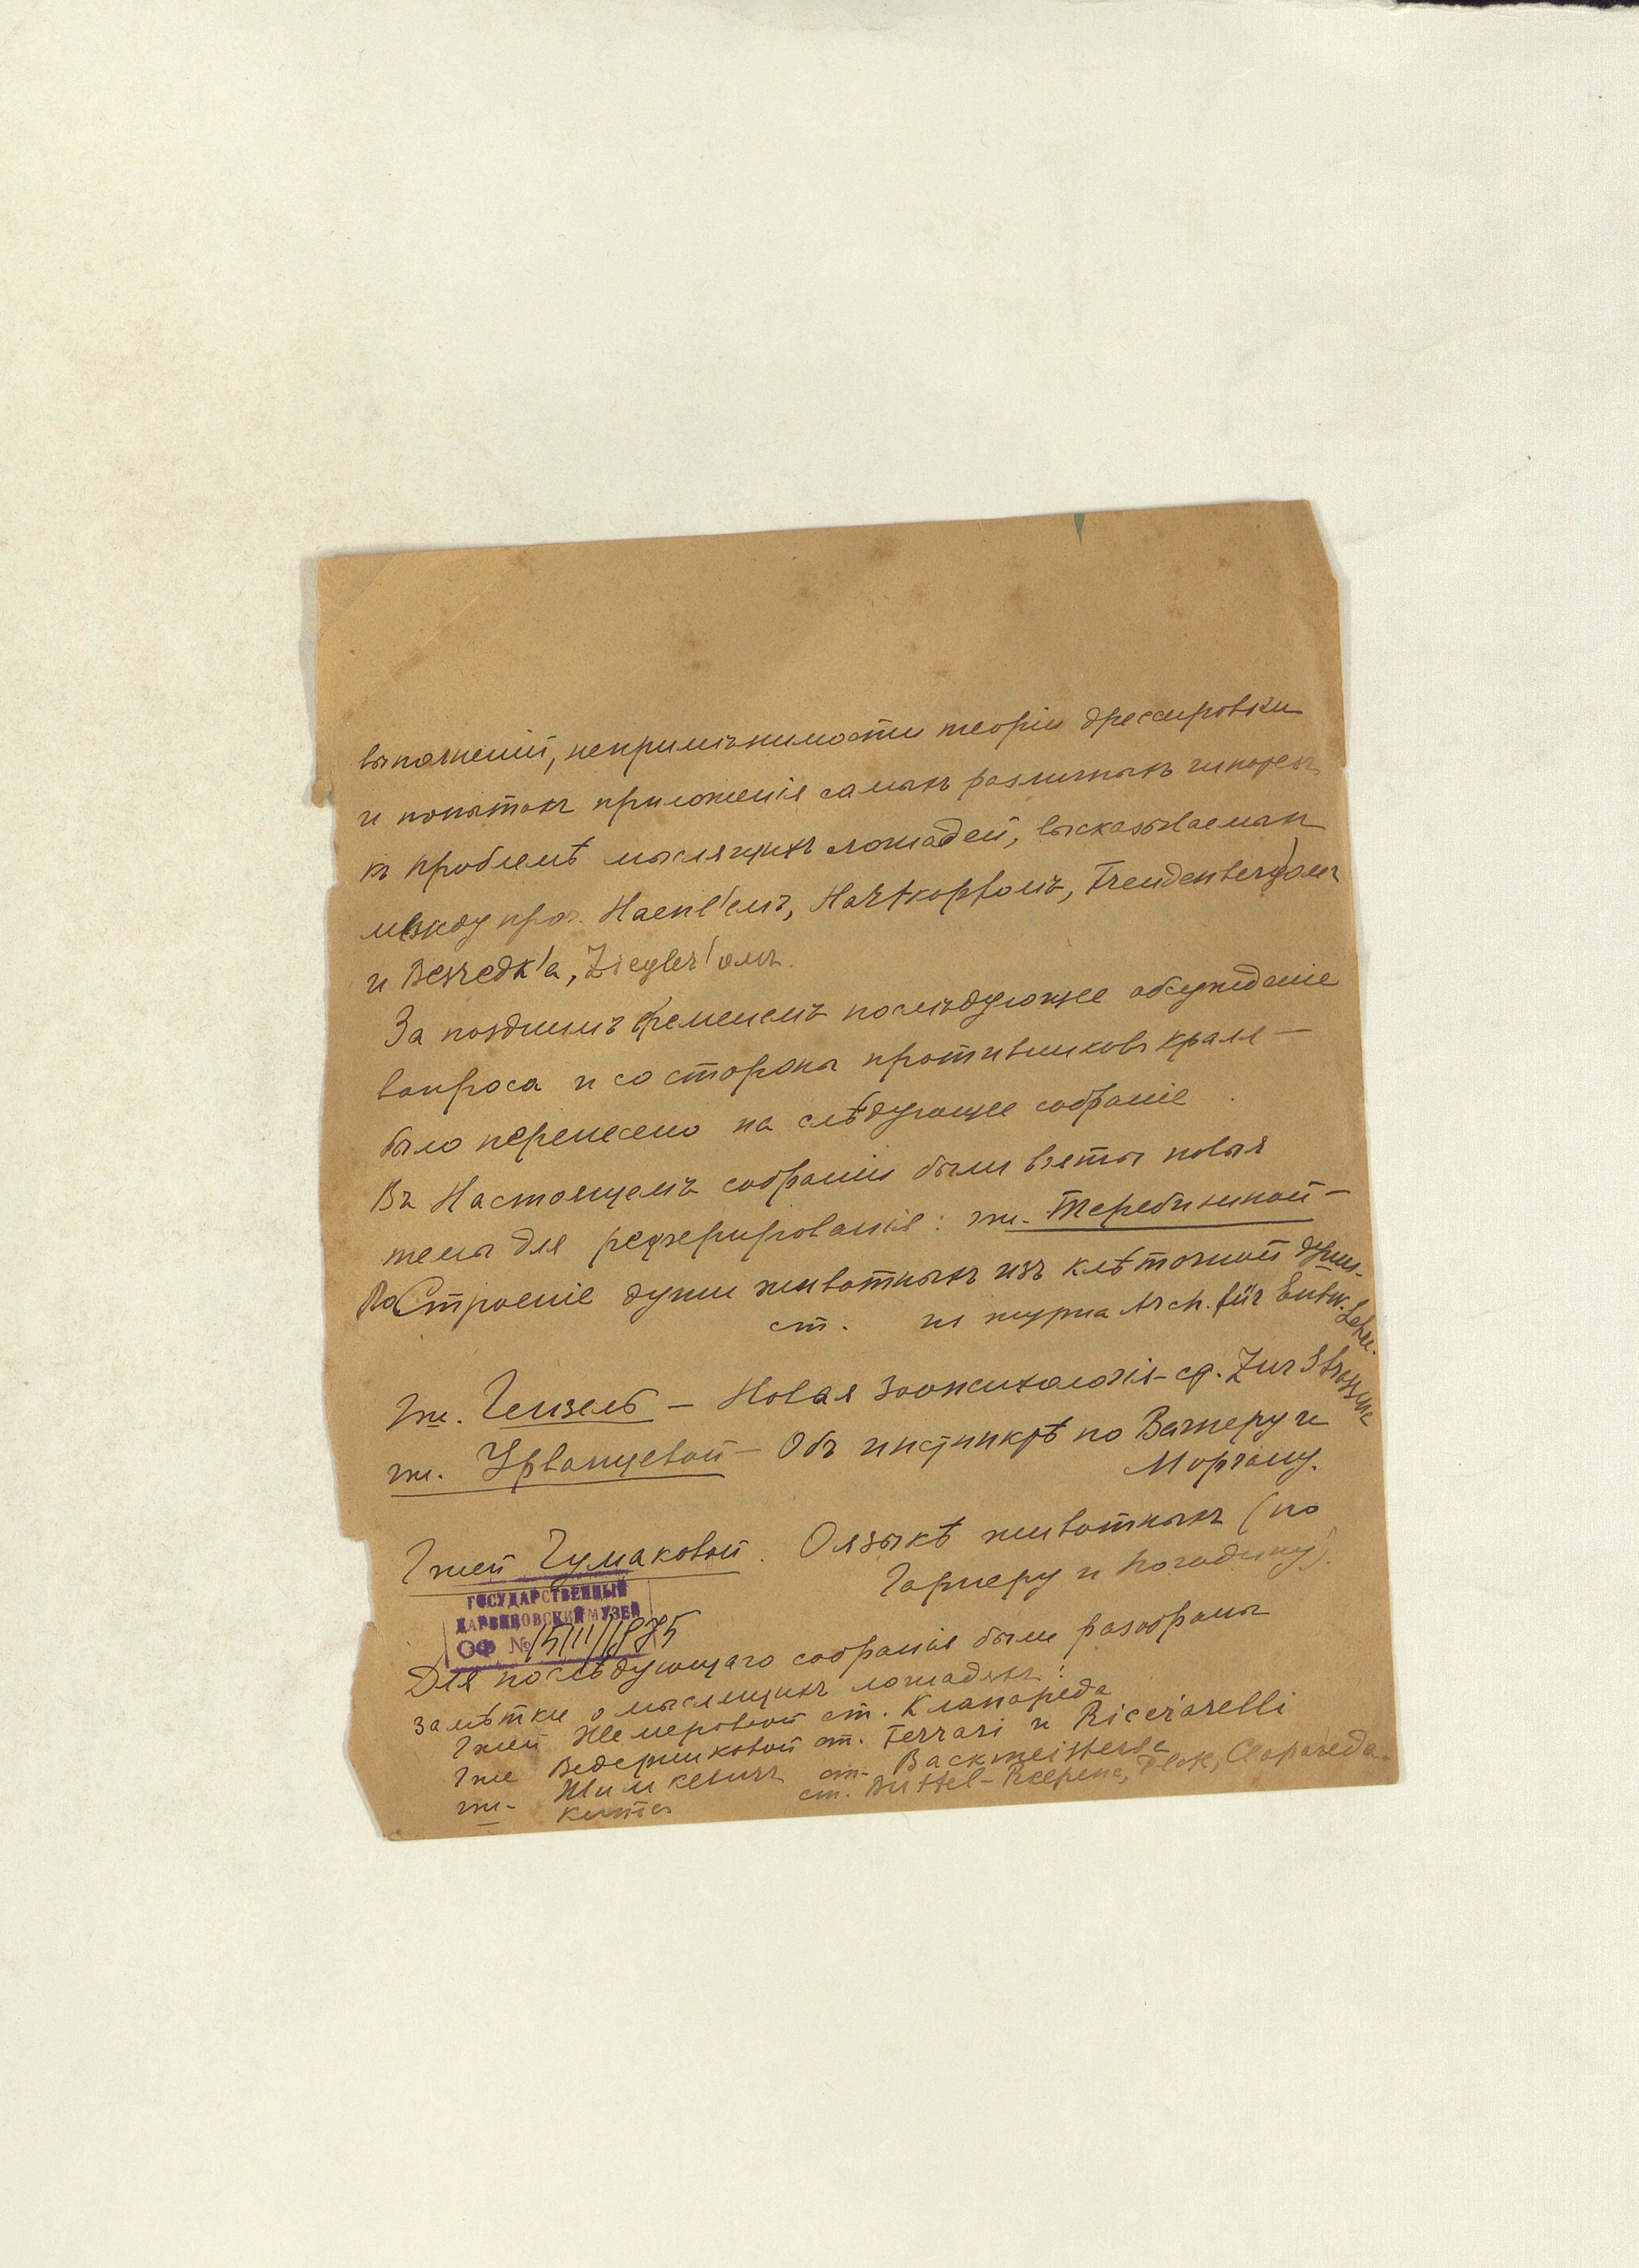 выполненій, неприменимости теоріи дрессировки
и попыток приложенія самых различных гипотез
къ проблемѣ мыслящихъ лошадей, высказываемых
между проч. Haenel'емъ, Hartkopf'омъ, Freudenberg'омъ
и Bezredk'а, Ziegler'омъ.
За позднимъ временемъ послѣдующее обсужденіе
вопроса и со стороны противниковъ Кралл—
было перенесено на слѣдующее собраніе.
Въ Настоящемъ собраніи были взяты новыя
темы для реферированія: гж. Теребинской—
Построеніе души животныхъ изъ клѣточной души.
ст. из журна Arch. für Entw. Lehre.
Гж. Гензель — Новая Зоопсихологія — ст. Zur Strassene
гж. Урванцевой — Объ инстинктѣ по Вагнеру и
Моргану.
Гжей Чумаковой. О языкѣ животныхъ (по
Гарнеру и Погодину).
ГОСУДАРСТВЕННЫЙ
ДАРВИНОВСКИЙ МУЗЕЙ
ОФ №
Для послѣдующаго собранія были разобраны
замѣтки о мыслящихъ лошадях:
Гжей Немеровой ст. Клапареда
Гже Ведерниковой ст. Ferrari и Ricciarelli
гж. Шимкевичъ ст. Backmeistera
ст. Buttel-Reepene, Plate, Clapareda.